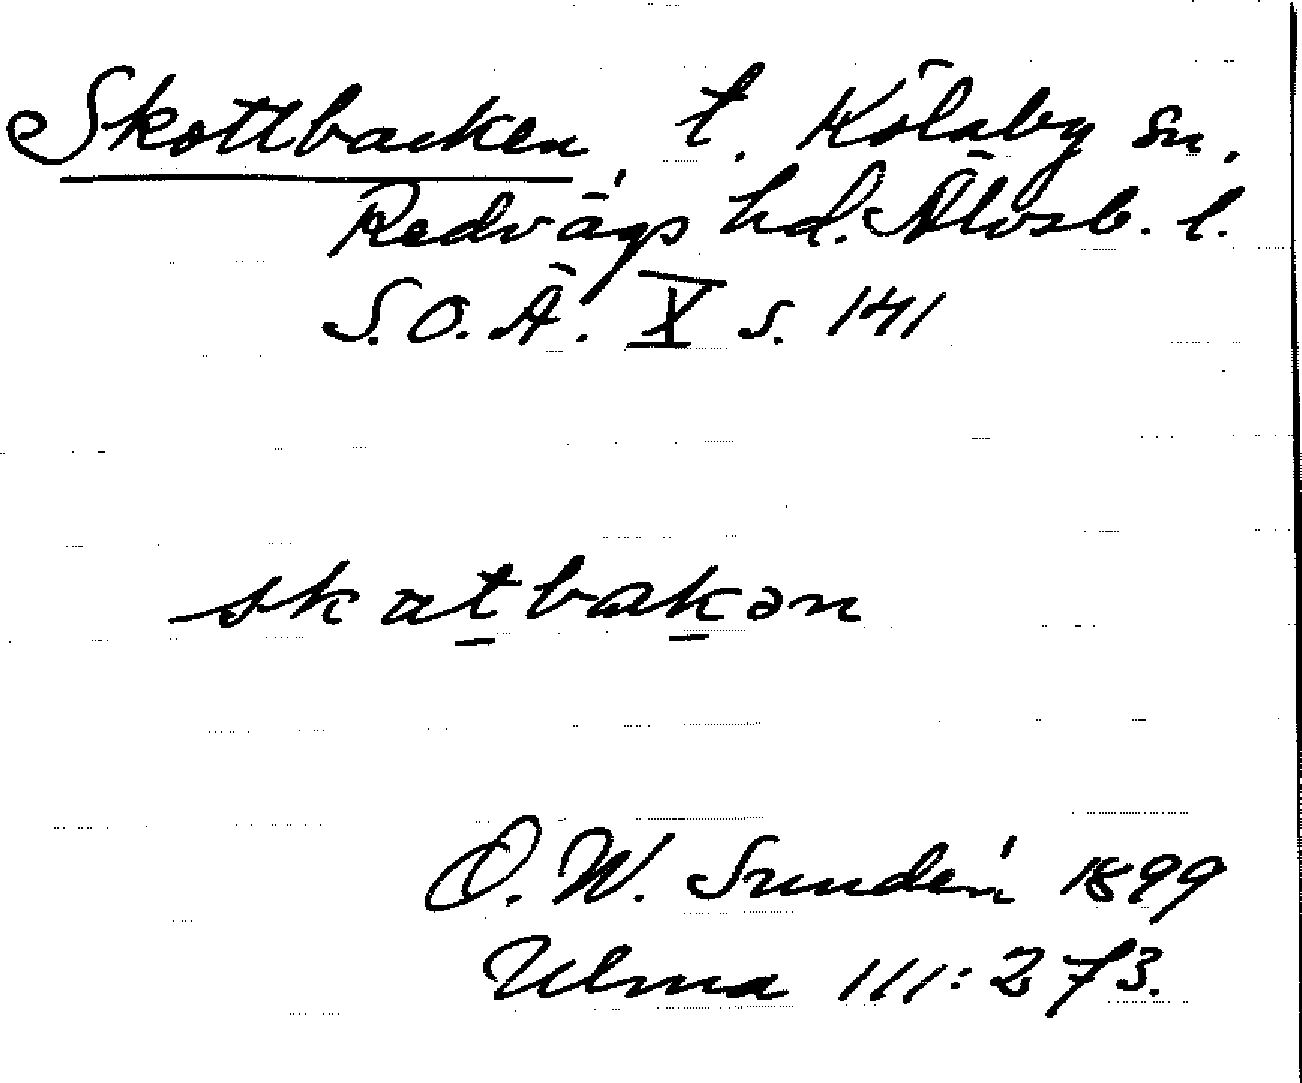 Skottbacken, t. Kölaby sn,
Redvägs hd. Älvsb. l.
S.O.Ä. X s. 141
skatbakən
O. W. Sundén 1899
Ulma 111:273.